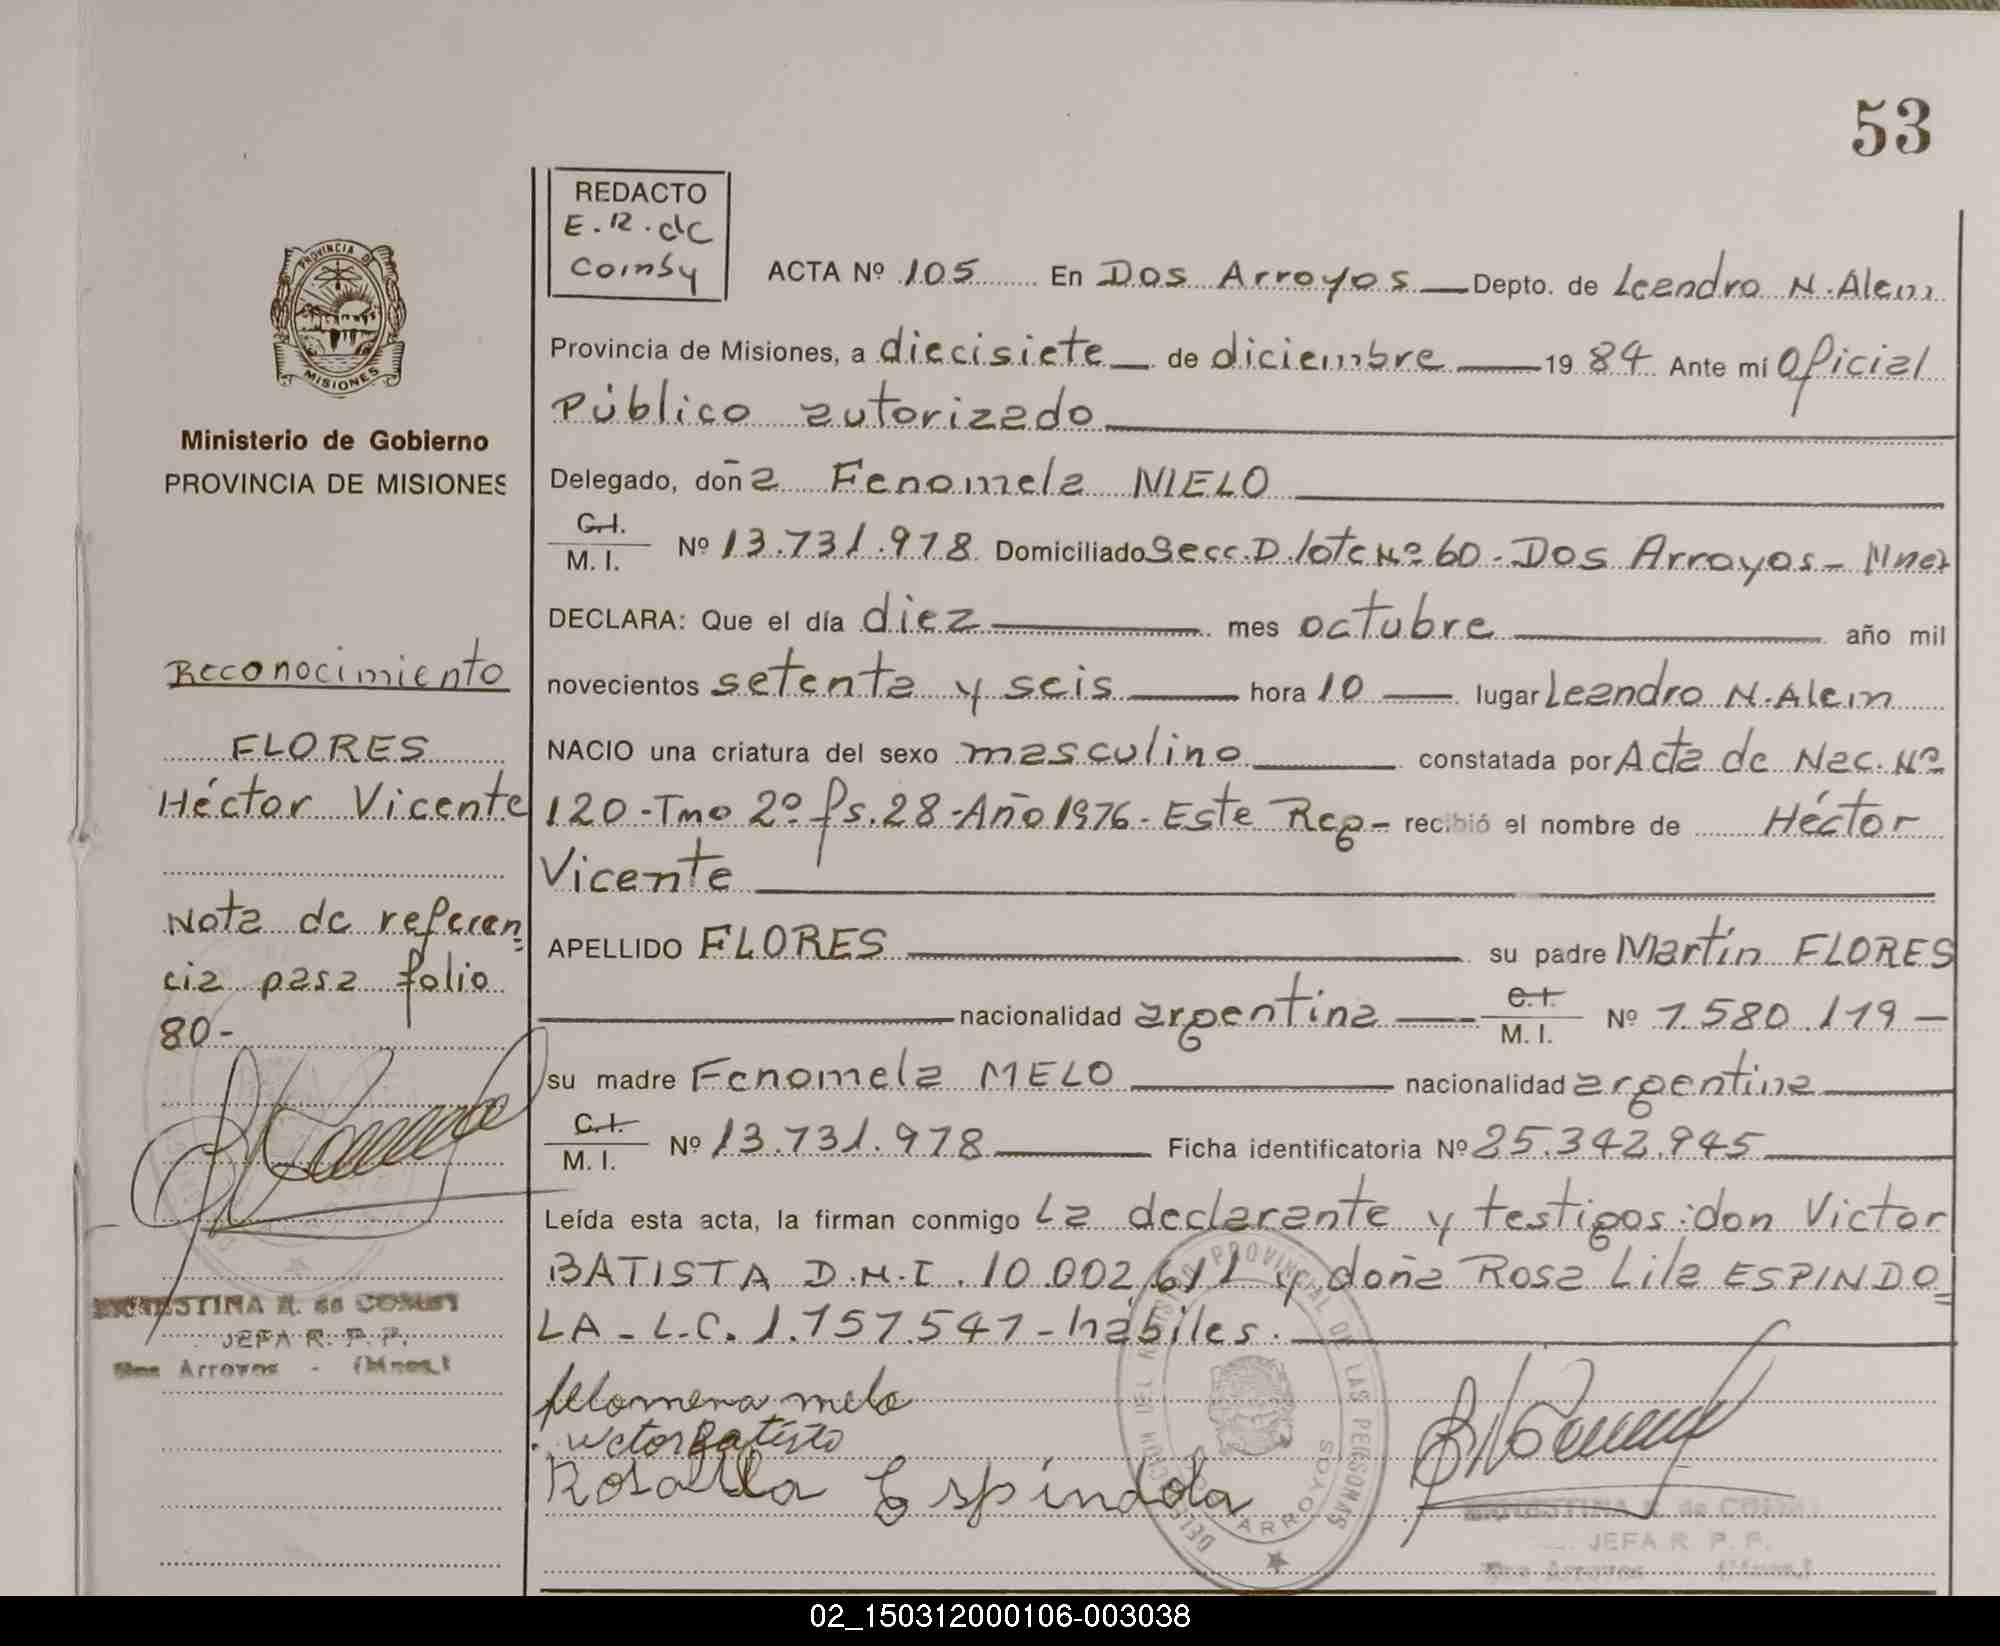 53
REDACTO
E.R. de
Coinsy
ACTA Nº 105 En Dos Arroyos Depto. de Leandro N. Alem
Provincia de Misiones, a diecisiete de diciembre 1984 Ante mí Oficial
Público autorizado
Delegado, doña Fenomela MELO
C.I.
M. I. Nº 13.731.978 Domiciliado Secc. D. lote Nº 60 - Dos Arroyos - Mnes
DECLARA: Que el día diez mes octubre año mil
novecientos setenta y seis hora 10 lugar Leandro N. Alem
NACIO una criatura del sexo masculino constatada por Acta de Nac. Nº
120 - Tmo 2º fs. 28 - Año 1976 - Este Reg - recibió el nombre de Héctor
Vicente
APELLIDO FLORES su padre Martín FLORES
nacionalidad argentina C.I.
M. I. Nº 7.580.119 -
su madre Fenomela MELO nacionalidad argentina
C.I.
M. I. Nº 13.731.978 Ficha identificatoria Nº 25.342.945
Leída esta acta, la firman conmigo La declarante y testigos: don Victor
BATISTA D.N.I. 10.002.611 y doña Rosa Lila ESPINDO=
LA - L.C. 1.757.547 - hábiles.
felomena melo
victor Batisto
Rosa lila Espíndola
DELEGACION DEL REGISTRO PROVINCIAL DE LAS PERSONAS
DOS ARROYOS
ERNESTINA R. de COINSY
JEFA R. P. P.
Dos Arroyos - (Mnes.)
PROVINCIA DE
MISIONES
Ministerio de Gobierno
PROVINCIA DE MISIONES
Reconocimiento
FLORES
Héctor Vicente
Nota de referen=
cia pasa folio
80-
ERNESTINA R. de COINSY
JEFA R. P. P.
Dos Arroyos - (Mnes.)
02_150312000106-003038